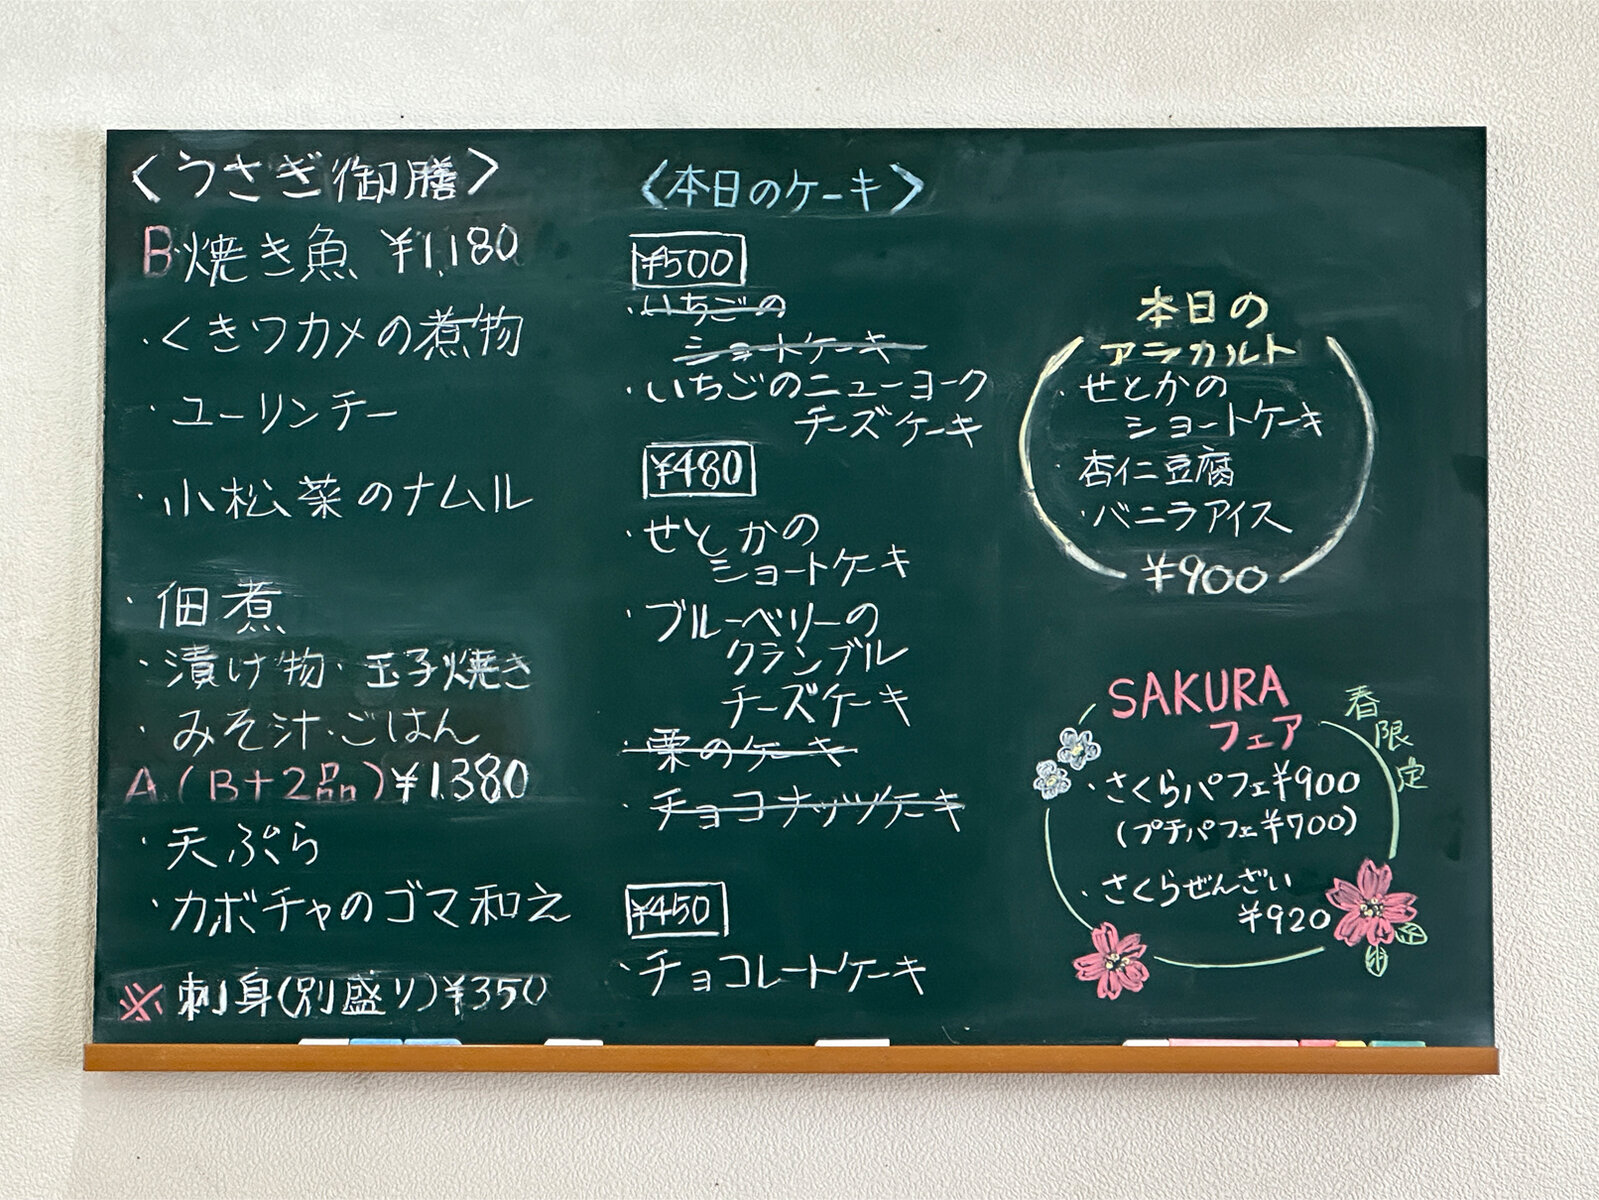 〈うさぎ御膳〉
B 焼き魚 ¥1,180
・くきワカメの煮物
・ユーリンチー
・小松菜のナムル
・佃煮
・漬け物・玉子焼き
・みそ汁・ごはん
A(B+2品)¥1,380
・天ぷら
・カボチャのゴマ和え
※刺身(別盛り)¥350
〈本日のケーキ〉
¥500
・いちごの
ショートケーキ
・いちごのニューヨーク
チーズケーキ
¥480
・せとかの
ショートケーキ
・ブルーベリーの
クランブル
チーズケーキ
・栗のケーキ
・チョコナッツケーキ
¥450
・チョコレートケーキ
本日の
アラカルト
・せとかの
ショートケーキ
・杏仁豆腐
・バニラアイス
¥900
SAKURA
フェア
春限定
・さくらパフェ¥900
(プチパフェ¥700)
・さくらぜんざい
¥920